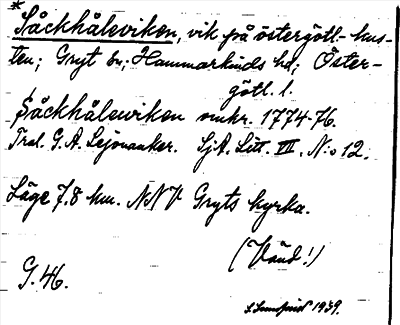 * Såckhåleviken, vik på östergötl.-kus-
ten; Gryt sn; Hammarkinds hd; Öster-
götl. l.
Såckhålswiken omkr. 1774-76.
Trol. G.A. Lejonanker. SjA. Litt. VII. N:o 12.
Läge 7,8 km. NNV Gryts kyrka.
(Vänd!)
G. 46.
S. Lundqvist 1939.